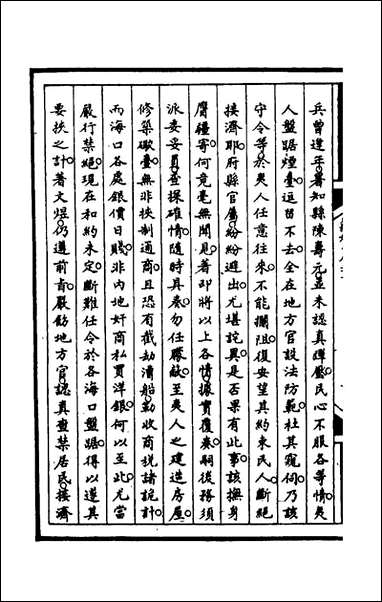 兵曾逢年署知縣陳壽元並未認真彈壓民心不服各等情夷
人盤踞煙臺逗留不去全在地方官設法防範杜其窺伺乃該
守令等於夷人任意往來不能攔阻復安望其約束民人斷絕
接濟耶府縣官屬紛紛避出尤堪詫異是否果有此事該撫身
膺疆寄何竟毫無聞見著即將以上各情據實覆奏嗣後務須
派委妥員查探確情隨時具奏勿任朦飾至夷人之建造房屋
修築礮臺無非挾制通商且恐有截劫漕船勒收商稅諸詭計
而海口各處銀價日賤非內地奸商私買洋銀何以至此尤當
嚴行禁絕現在和約未定斷難任令於各海口盤踞得以遂其
要挾之計著文煜仍遵前旨嚴飭地方官認真查禁居民接濟